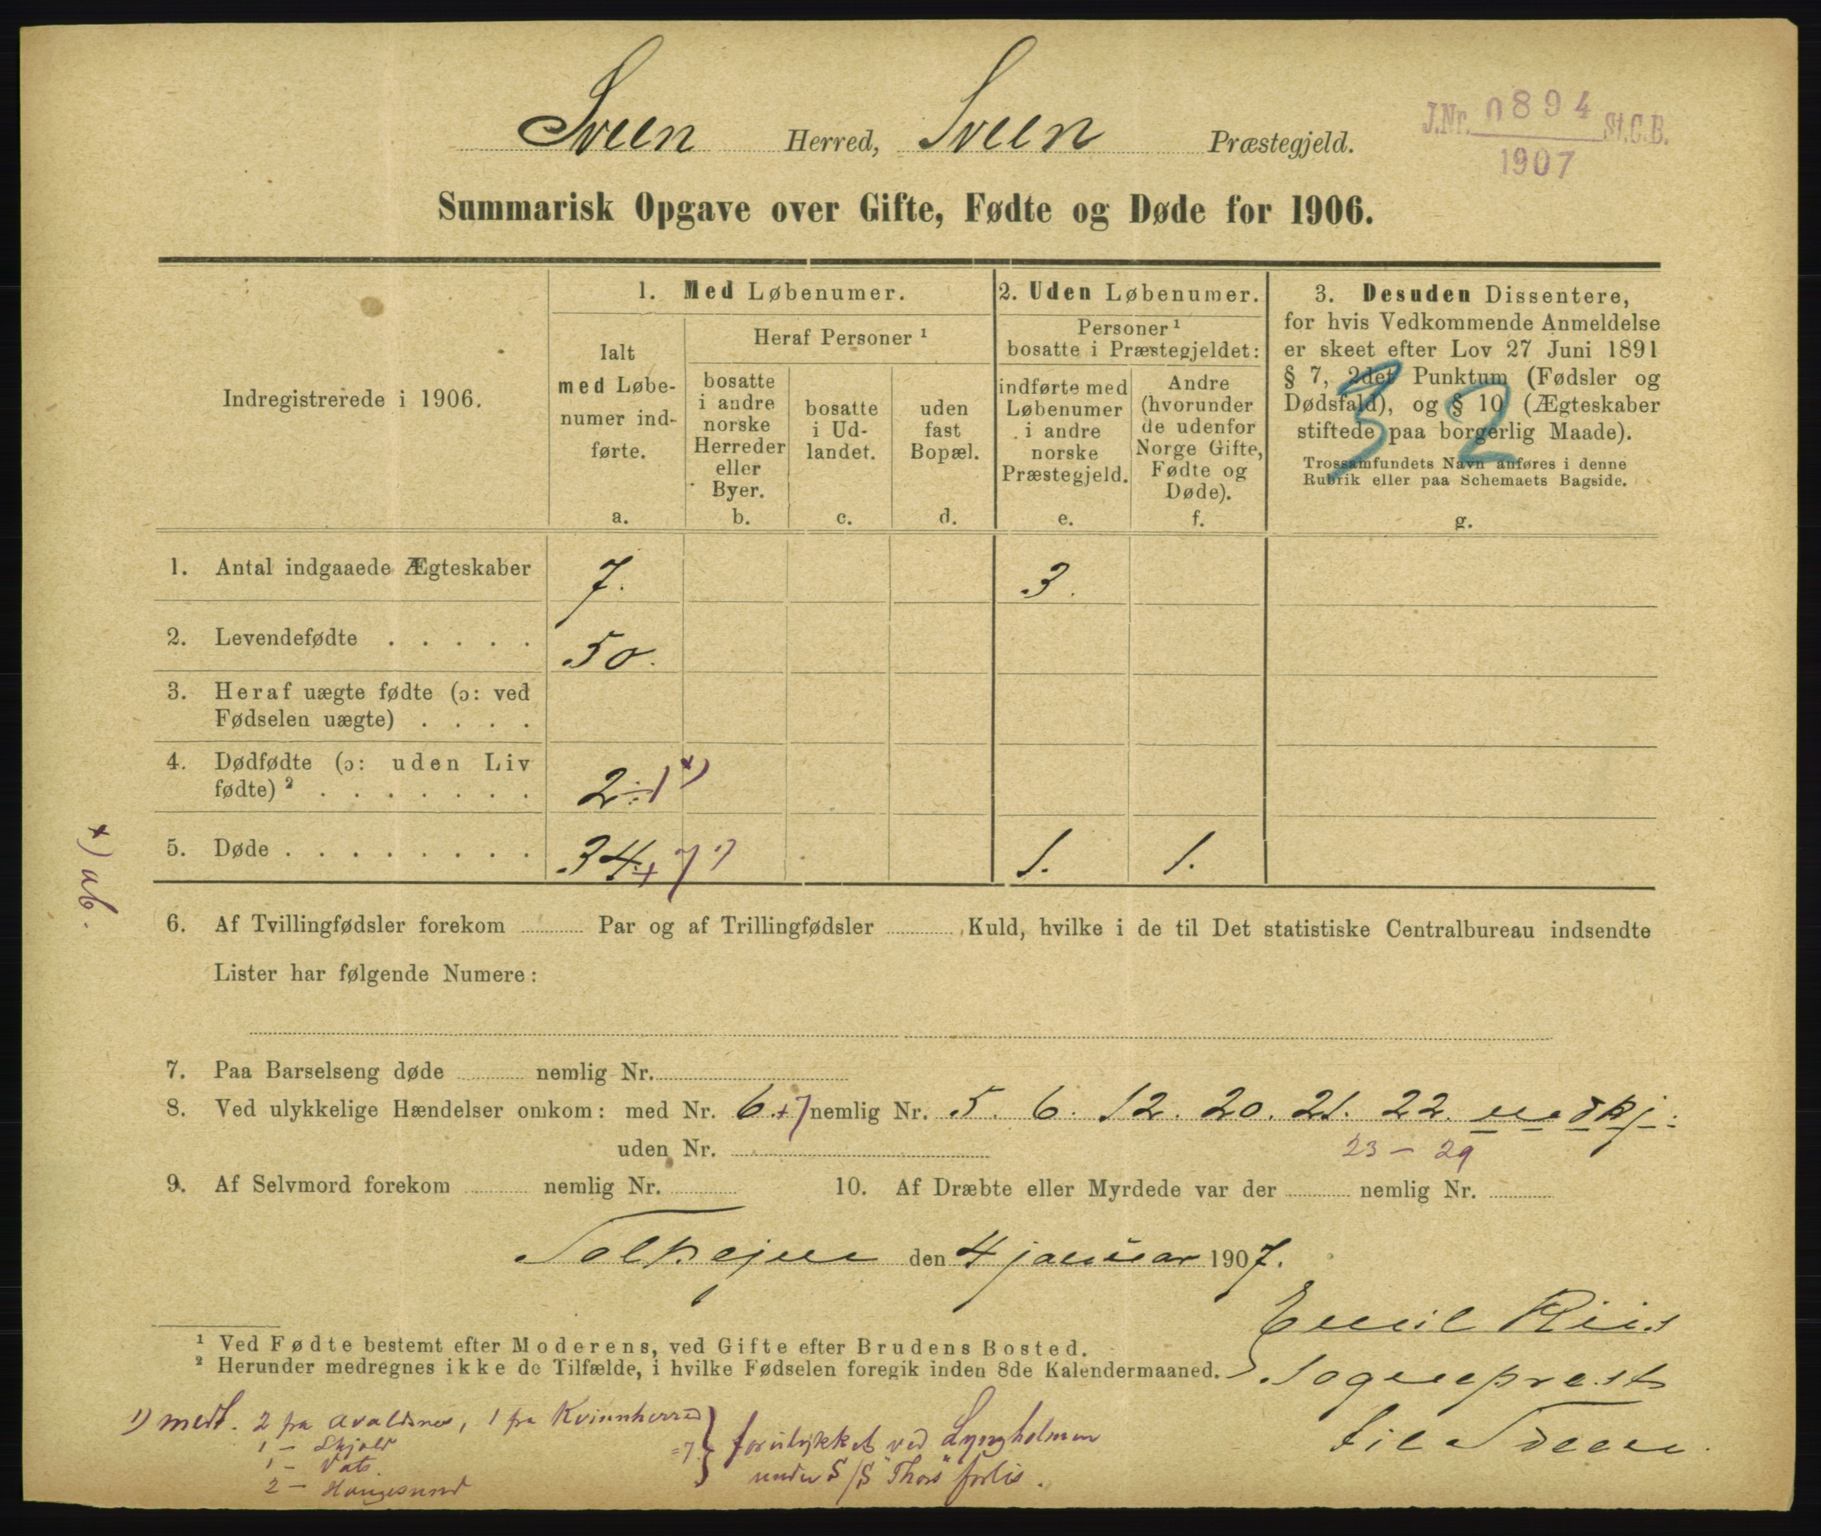 Sveen Herred, Sveen Præstegjeld.
J.Nr. 0894 St.C.B.
1907
Summarisk Opgave over Gifte, Fødte og Døde for 1906.
Indregistrerede i 1906.
1. Med Løbenumer.
Ialt
med Løbe-
numer ind-
førte.
a.
Heraf Personer ¹
bosatte
i andre
norske
Herreder
eller
Byer.
b.
bosatte
i Ud-
landet.
c.
uden
fast
Bopæl.
d.
2. Uden Løbenumer.
Personer ¹
bosatte i Præstegjeldet:
indførte med
Løbenumer
i andre
norske
Præstegjeld.
e.
Andre
(hvorunder
de udenfor
Norge Gifte,
Fødte og
Døde).
f.
3. Desuden Dissentere,
for hvis Vedkommende Anmeldelse
er skeet efter Lov 27 Juni 1891
§ 7, 2det Punktum (Fødsler og
Dødsfald), og § 10 (Ægteskaber
stiftede paa borgerlig Maade).
Trossamfundets Navn anføres i denne
Rubrik eller paa Schemaets Bagside.
g.
32
1. Antal indgaaede Ægteskaber 7. 3.
2. Levendefødte . . . . . 50.
3. Heraf uægte fødte (ɔ: ved
Fødselen uægte) . . . .
4. Dødfødte (ɔ: uden Liv
fødte) ² . . . . . . . 2 ÷ 1 +)
5. Døde . . . . . . . . . 34. + 7 ¹) 1. 1.
+) ab.
6. Af Tvillingfødsler forekom Par og af Trillingfødsler Kuld, hvilke i de til Det statistiske Centralbureau indsendte
Lister har følgende Numere:
7. Paa Barselseng døde nemlig Nr.
8. Ved ulykkelige Hændelser omkom: med Nr. 6. +7 nemlig Nr. 5. 6. 12. 20. 21. 22.
uden Nr. 23 - 29
9. Af Selvmord forekom nemlig Nr. 10. Af Dræbte eller Myrdede var der nemlig Nr.
den 4 januar 1907.
Emil Riis
Sogneprest
til Sveen.
¹ Ved Fødte bestemt efter Moderens, ved Gifte efter Brudens Bosted.
² Herunder medregnes ikke de Tilfælde, i hvilke Fødselen foregik inden 8de Kalendermaaned.
1) medt. 2 fra Avaldsnes, 1 fra Kvinnherred
1 - Skjold
1 - Vats.
2 - Haugesund
=7. forulykket ved Lyngholmen
under S/S "Thors" forlis.